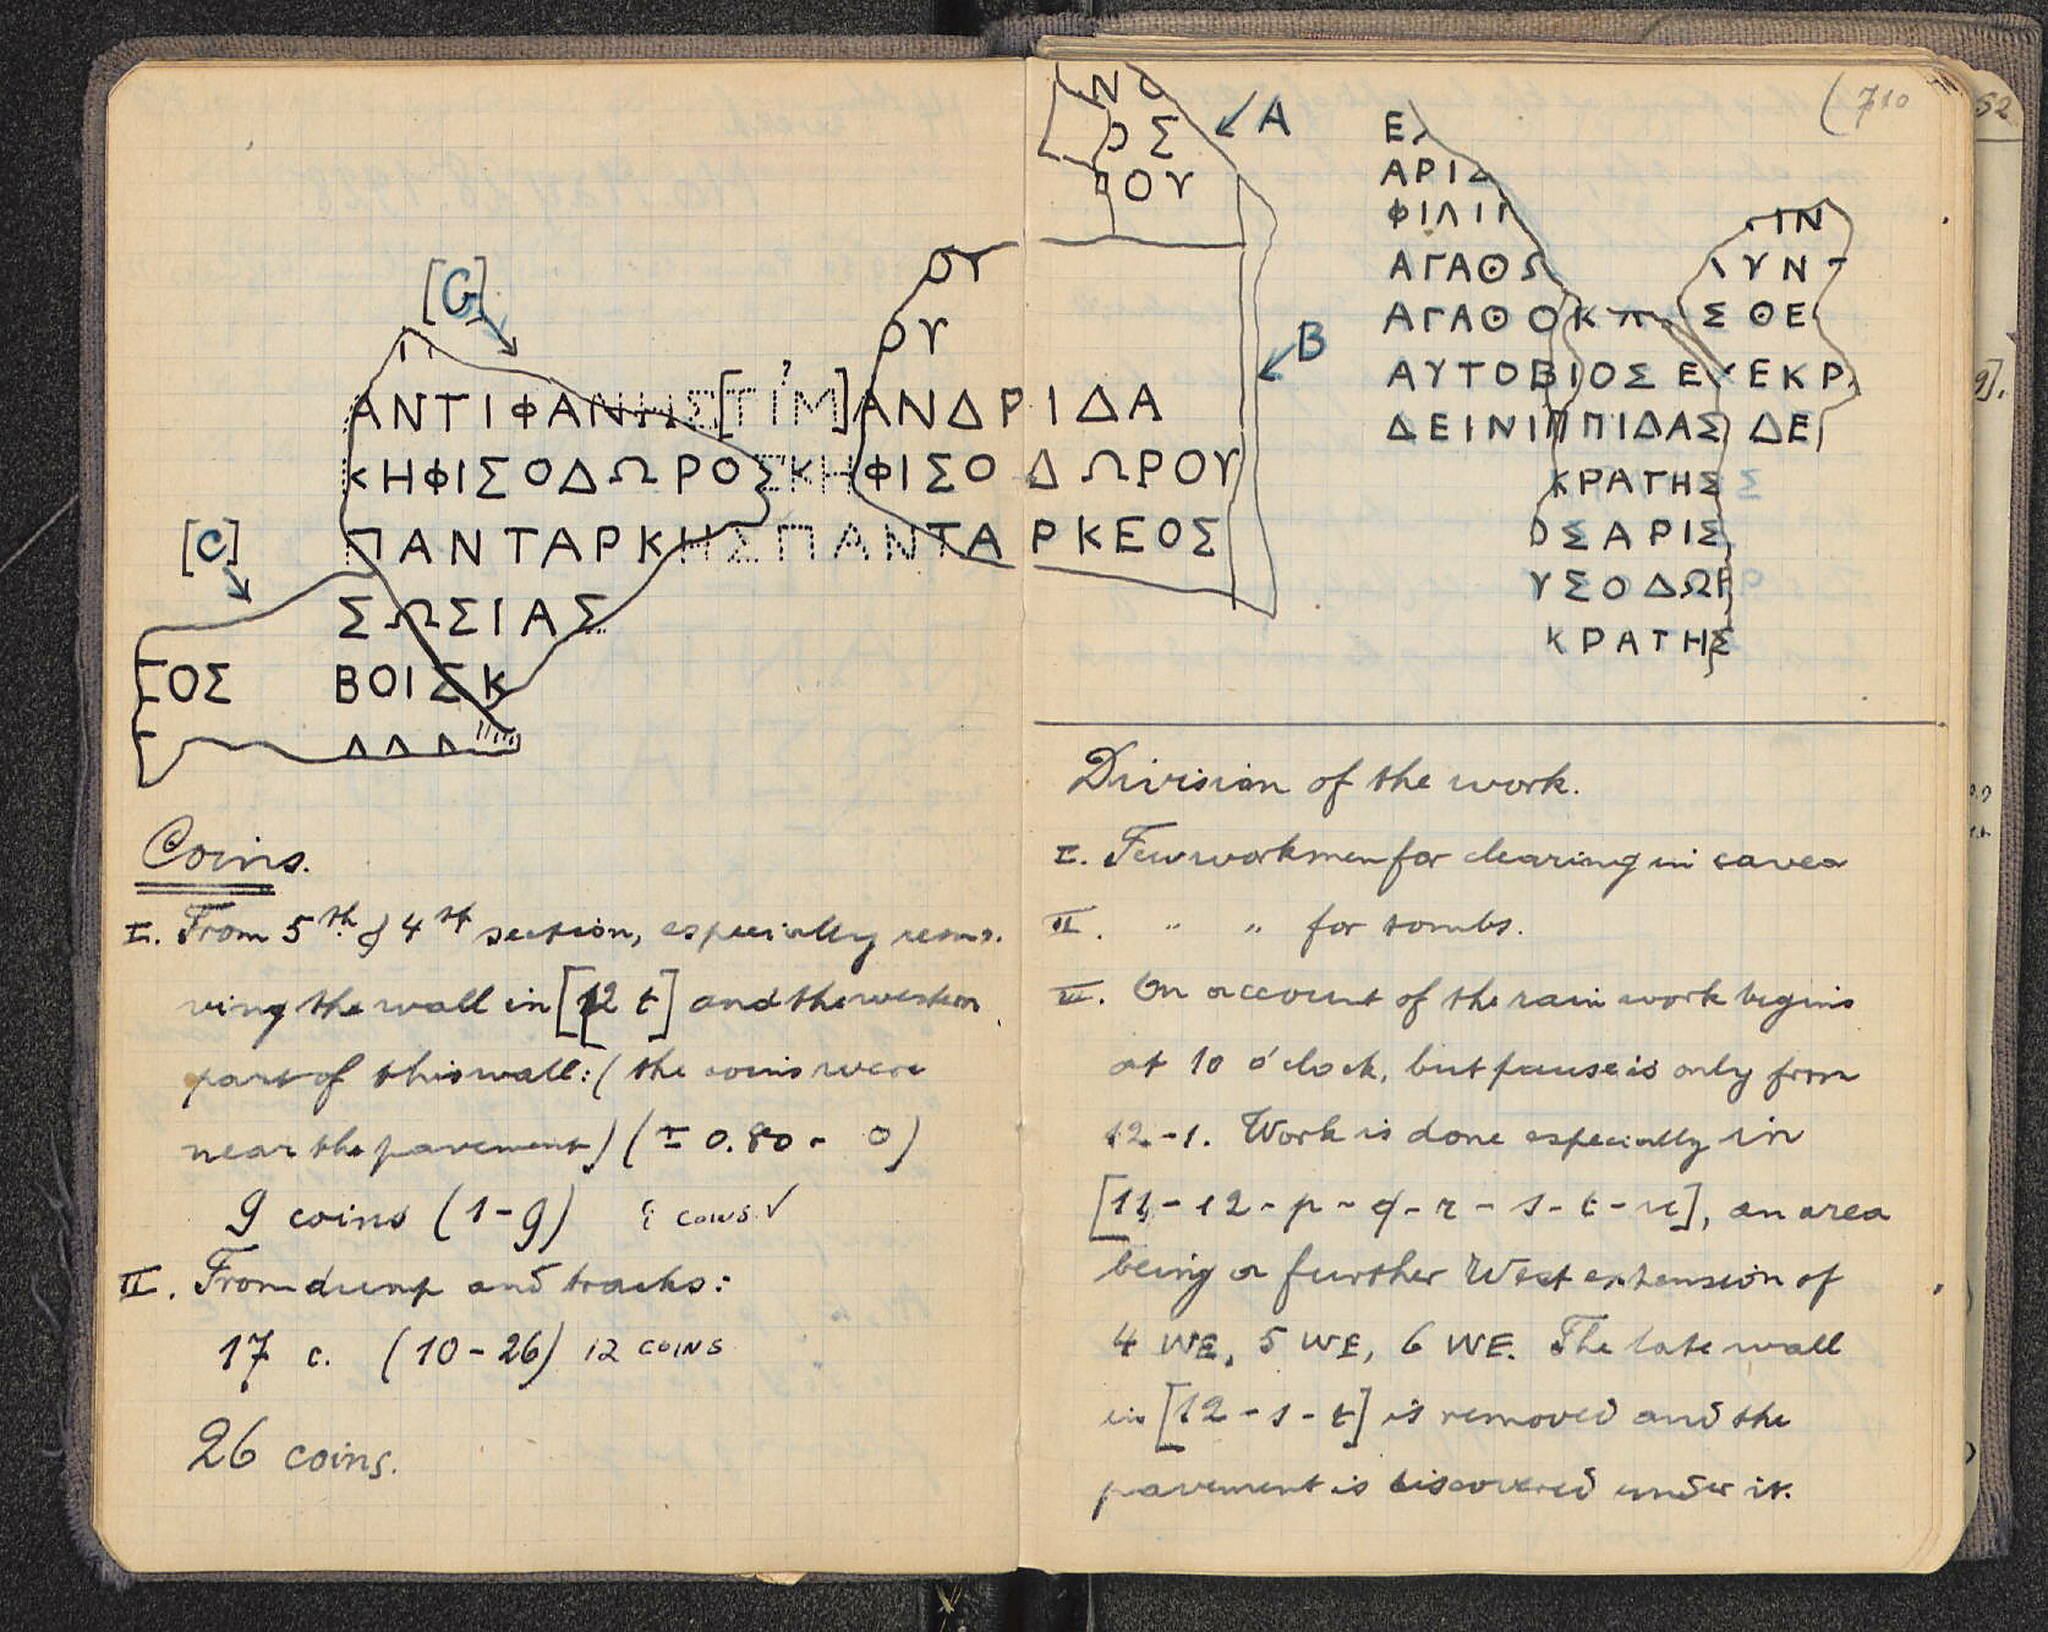 [C]
ΟΥ
ΟΥ
ΑΝΤΙΦΑΝΗΣ[ΤΙΜ]ΑΝΔΡΙΔΑ
ΚΗΦΙΣΟΔΩΡΟΣΚΗΦΙΣΟΔΩΡΟΥ
ΠΑΝΤΑΡΚΗΣΠΑΝΤΑΡΚΕΟΣ
[C]
ΣΩΣΙΑΣ
ΓΟΣ ΒΟΙΣΚ
Coins.
I. From 5th & 4th section, especially remo-
ving the wall in [12 t] and the western
part of this wall: (the coins were
near the pavement) (± 0.80 - 0)
9 coins (1-9) COINS ✓
II. From dump and tracks:
17 c. (10-26) 12 COINS
26 coins.
710
ΝΟ
ΟΣ
ΠΟΥ
A
B
Ε
ΑΡΙΣ
ΦΙΛΙΠ
ΑΓΑΘΟ
ΑΓΑΘΟΚ Σ ΘΕ
ΑΥΤΟΒΙΟΣ ΕΥ ΕΚΡ
ΔΕΙΝΙΠΠΙΔΑΣ ΔΕ
ΙΝ
ΥΝ
ΚΡΑΤΗΣ
ΟΣ ΑΡΙΣ
ΥΣΟΔΩΡ
ΚΡΑΤΗΣ
Division of the work.
I. Few workmen for clearing in cavea
II. " " for tombs.
III. On account of the rain work begins
at 10 o'clock, but pause is only from
12-1. Work is done especially in
[11-12-p-q-r-s-t-u], an area
being a further West extension of
4 WE, 5 WE, 6 WE. The late wall
in [12-s-t] is removed and the
pavement is discovered under it.
52